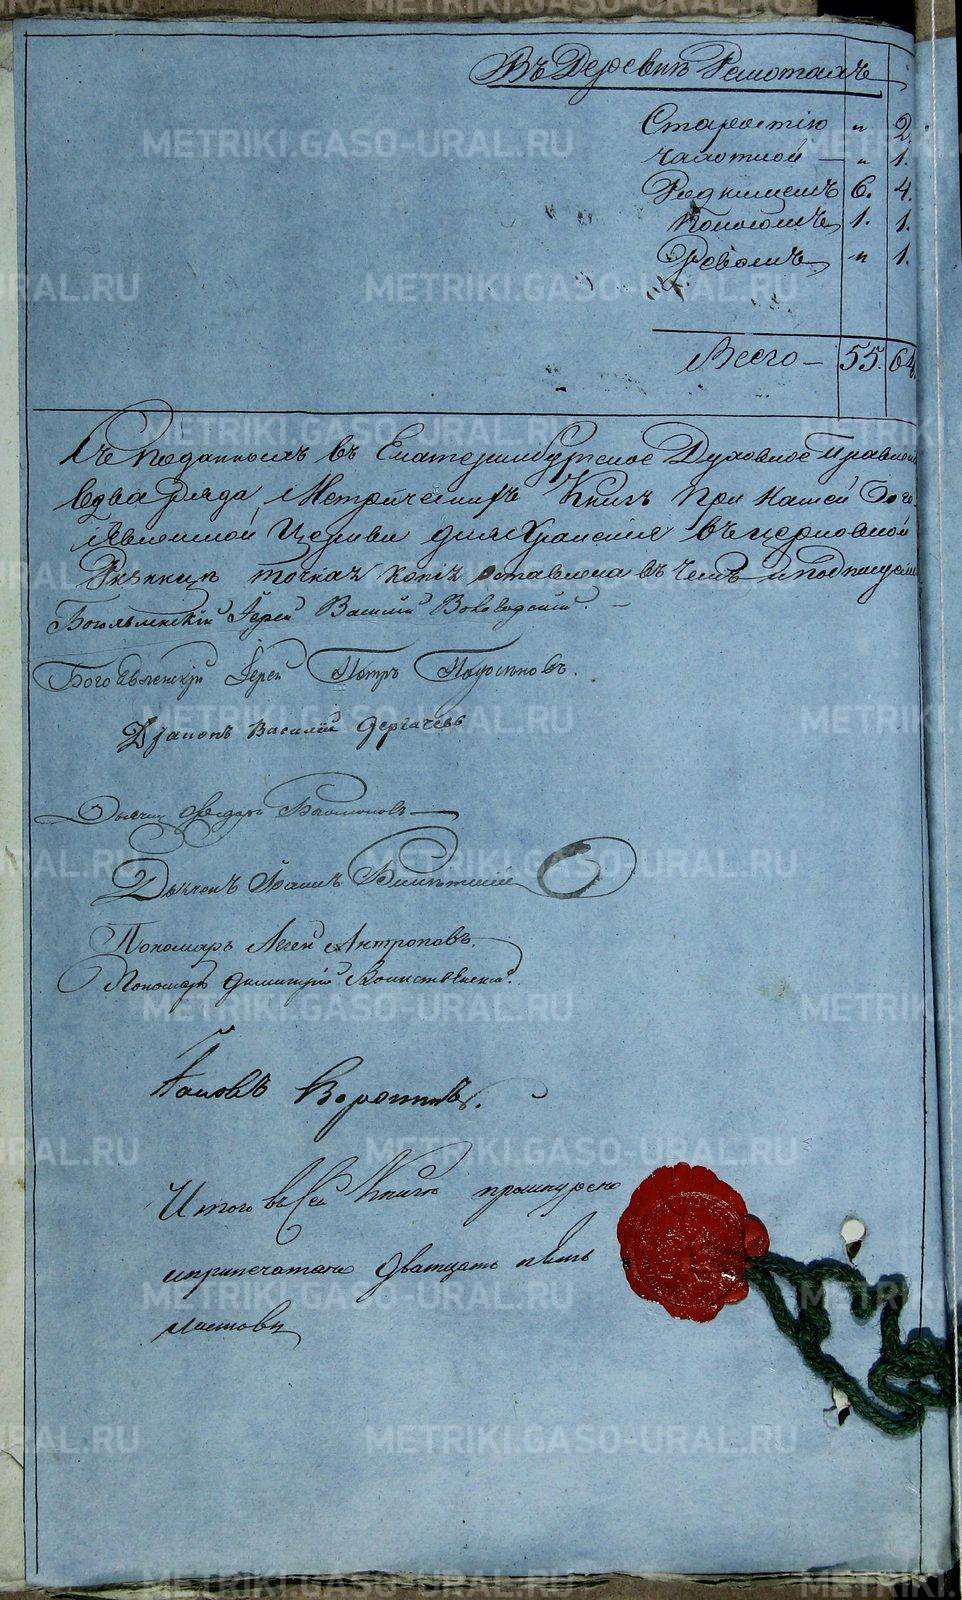 Въ Деревни Решотахъ
Старостію " 2.
чахоткой — " 1.
Родимцемъ 6. 4.
Поносомъ 1. 1.
" 1.
Всего — 55. 64.
Съ поданныхъ въ Екатеринбургское Духовное Правлен
вдва ряда Метрическихъ Книгъ при нашей Бого
явленской Церкви для Храненія въ церковной
Ризнице точная копія оставлена въ чемъ и подписуемся
Богоявленскій Іерей Василій Воеводскій.
Богоявленскій Іерей Петръ
Діаконъ Василій Дергачевъ
Дьячекъ Федоръ
Дьячекъ Иванъ
Пономарь Агей Антроповъ.
Пономарь Димитрій Воинственскій.
Іаковъ Коротковъ.
Итого въ Сей Книге прошнурено
иприпечатано дватцать пять
листовъ
METRIKI.GASO-URAL.RU